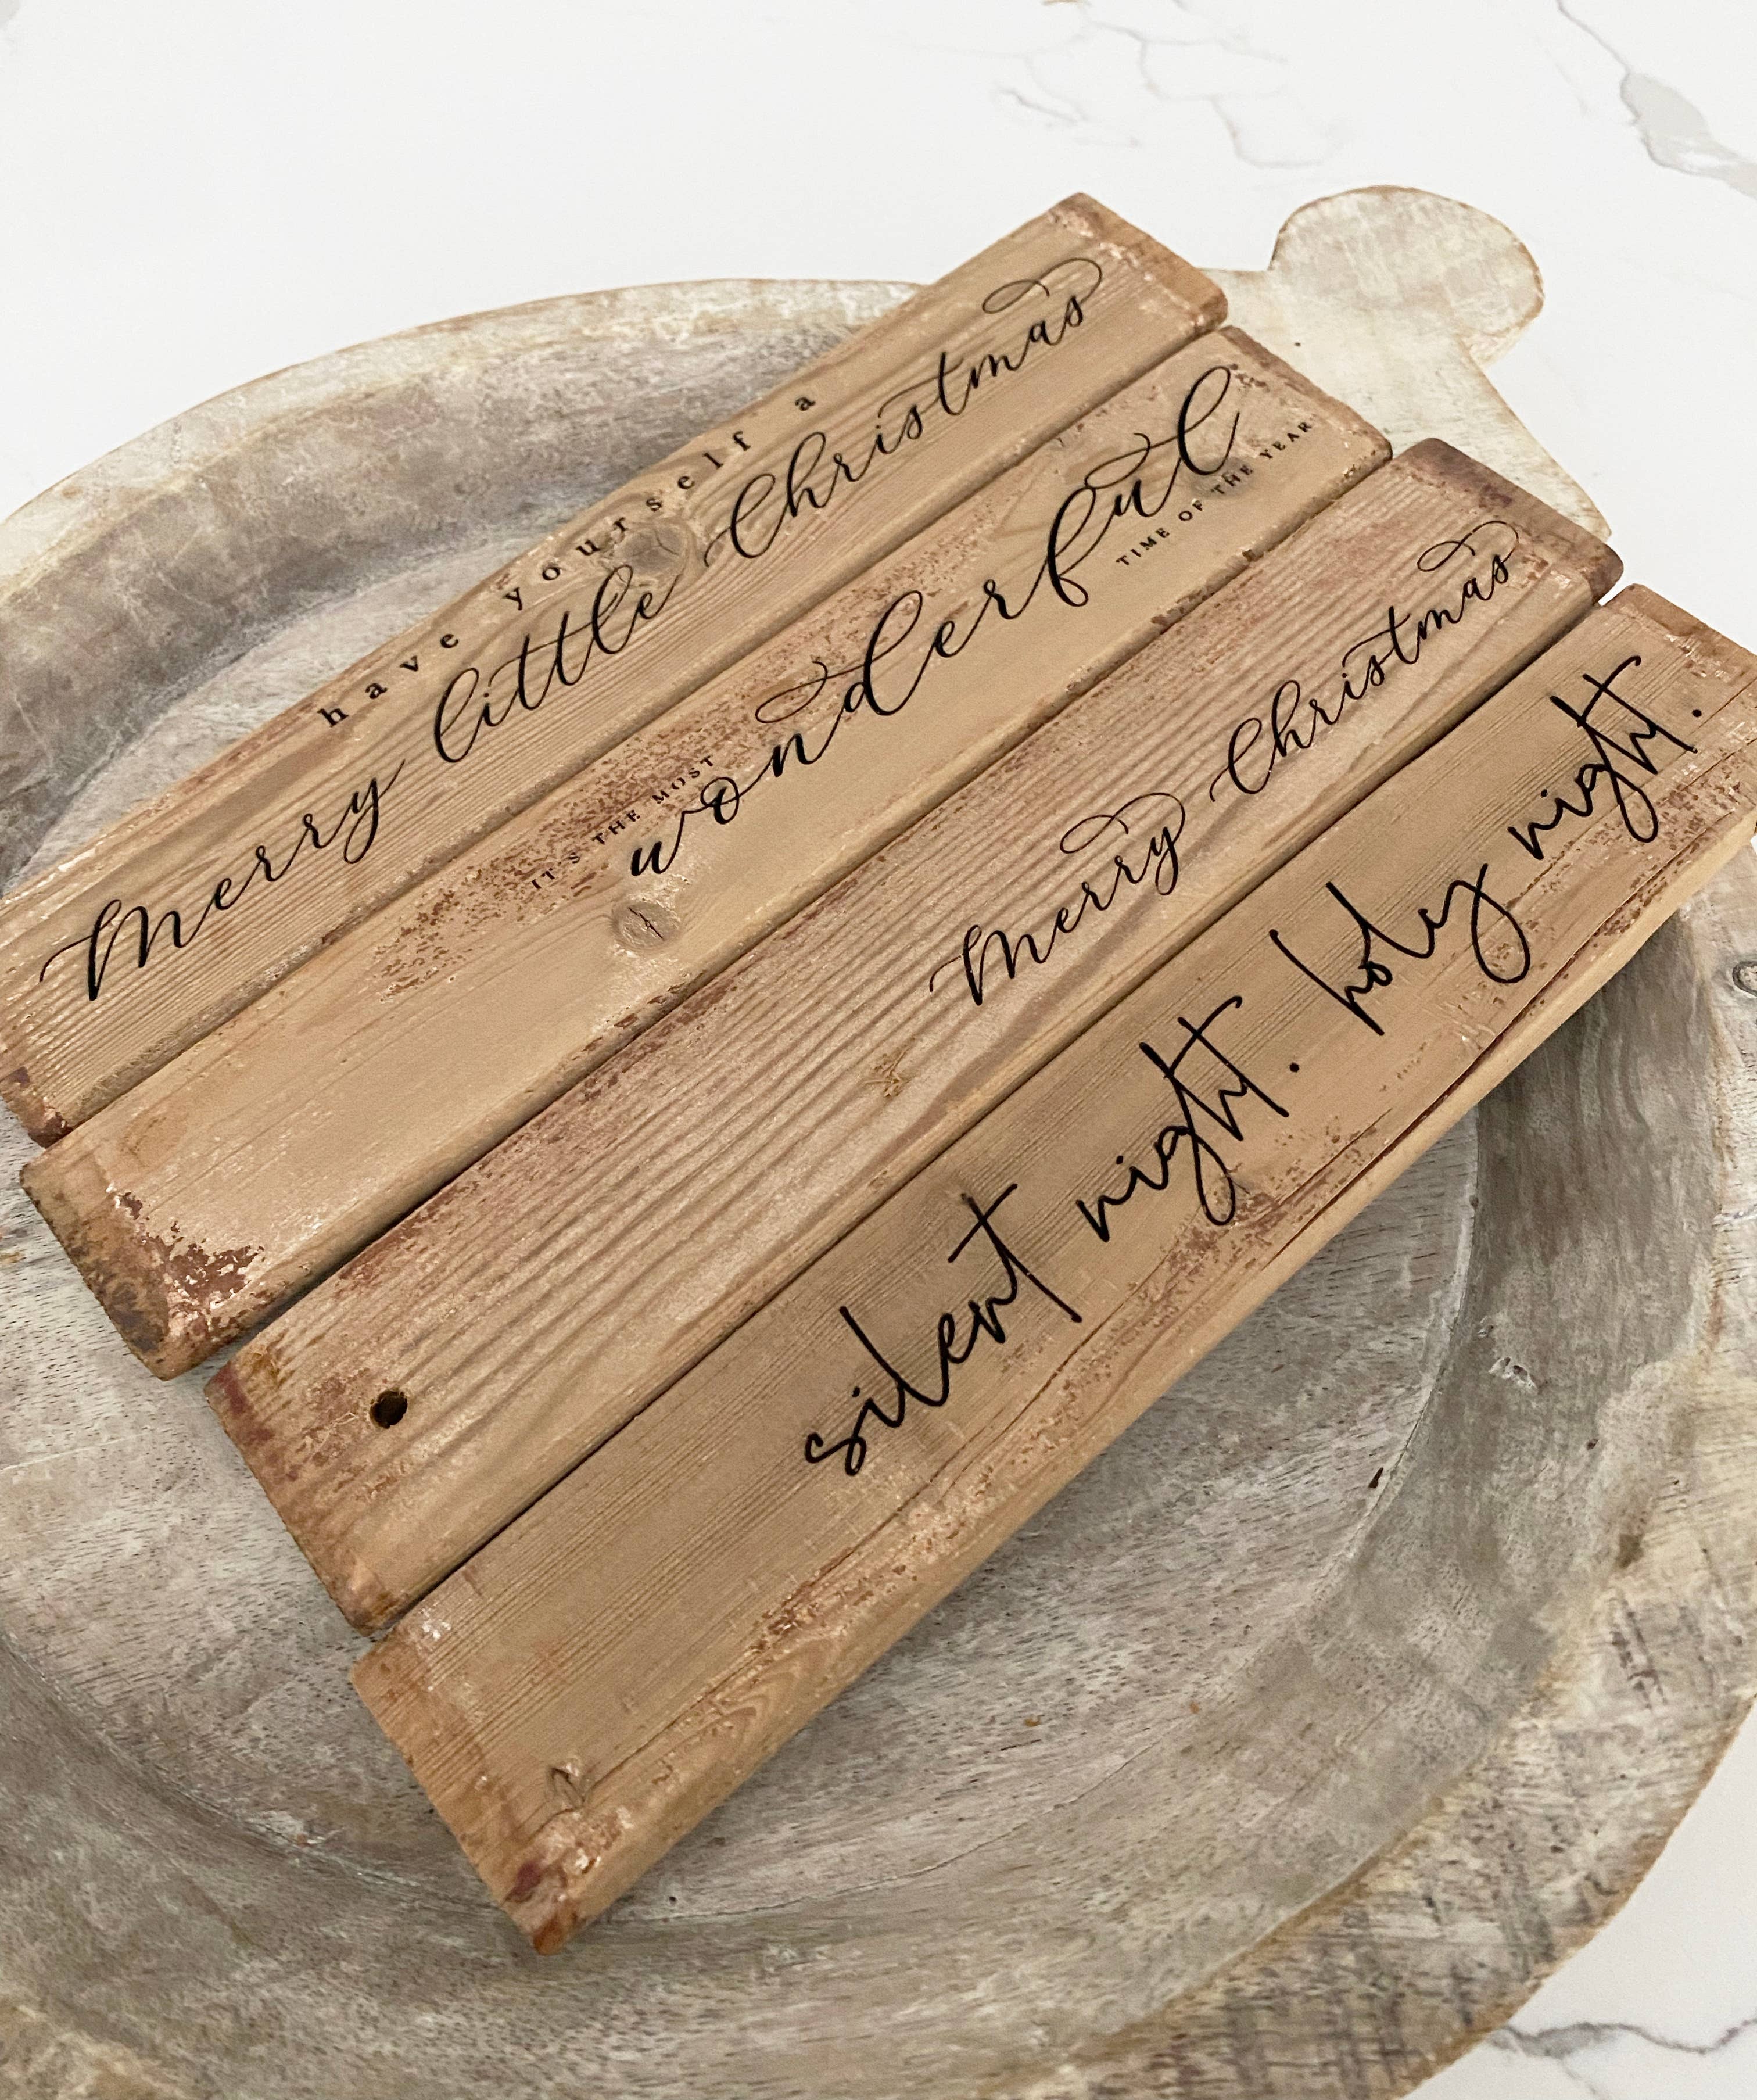 have yourself a
Merry little Christmas
IT'S THE MOST
wonderful
TIME OF THE YEAR
Merry Christmas
silent night. holy night.